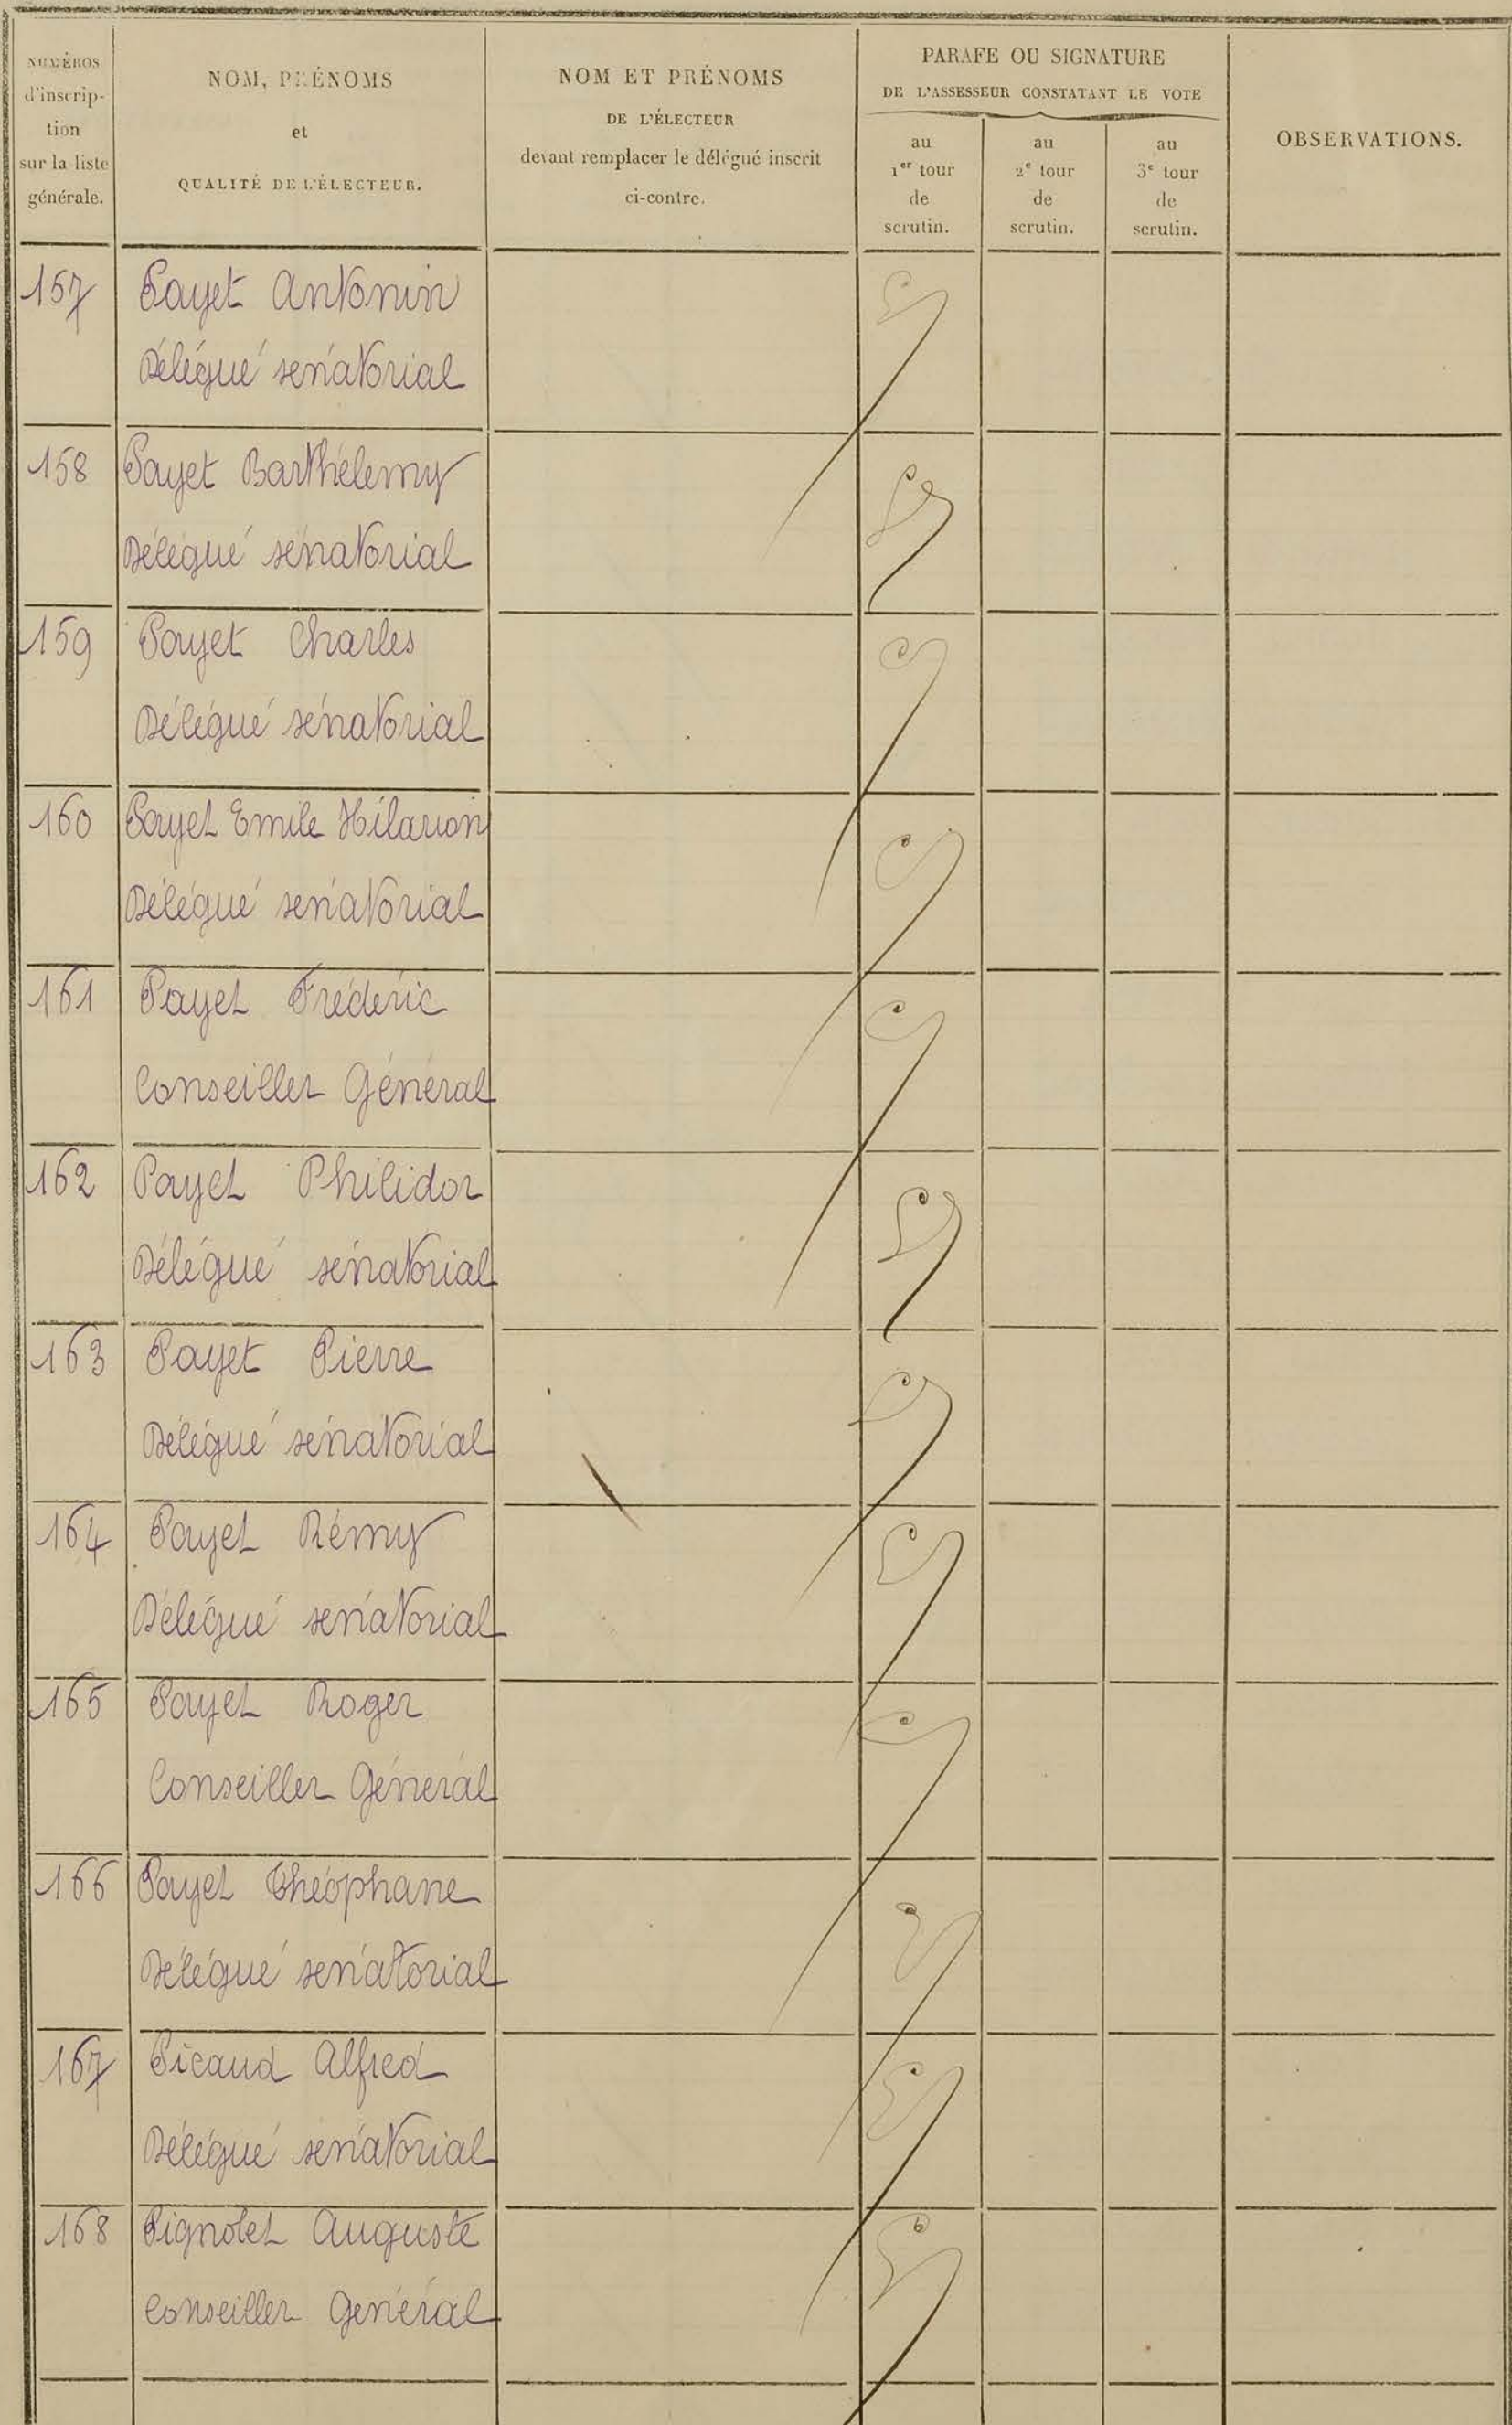 NUMÉROS
d'inscrip-
tion
sur la liste
générale.
NOM, PRÉNOMS
et
QUALITÉ DE L'ÉLECTEUR.
NOM ET PRÉNOMS
DE L'ÉLECTEUR
devant remplacer le délégué inscrit
ci-contre.
PARAFE OU SIGNATURE
DE L'ASSESSEUR CONSTATANT LE VOTE
au
1er tour
de
scrutin.
au
2e tour
de
scrutin.
au
3e tour
de
scrutin.
OBSERVATIONS.
157 Payet Antonin
Délégué sénatorial
158 Payet Barthélemy
Délégué sénatorial
159 Payet Charles
Délégué sénatorial
160 Payet Emile Hilarion
Délégué sénatorial
161 Payet Fréderic
Conseiller Général
162 Payet Philidor
Délégué sénatorial
163 Payet Pierre
Délégué sénatorial
164 Payet Rémy
Délégué sénatorial
165 Payet Roger
Conseiller Général
166 Payet Théophane
Délégué sénatorial
167 Picaud Alfred
Délégué sénatorial
168 Pignolet Auguste
Conseiller Général